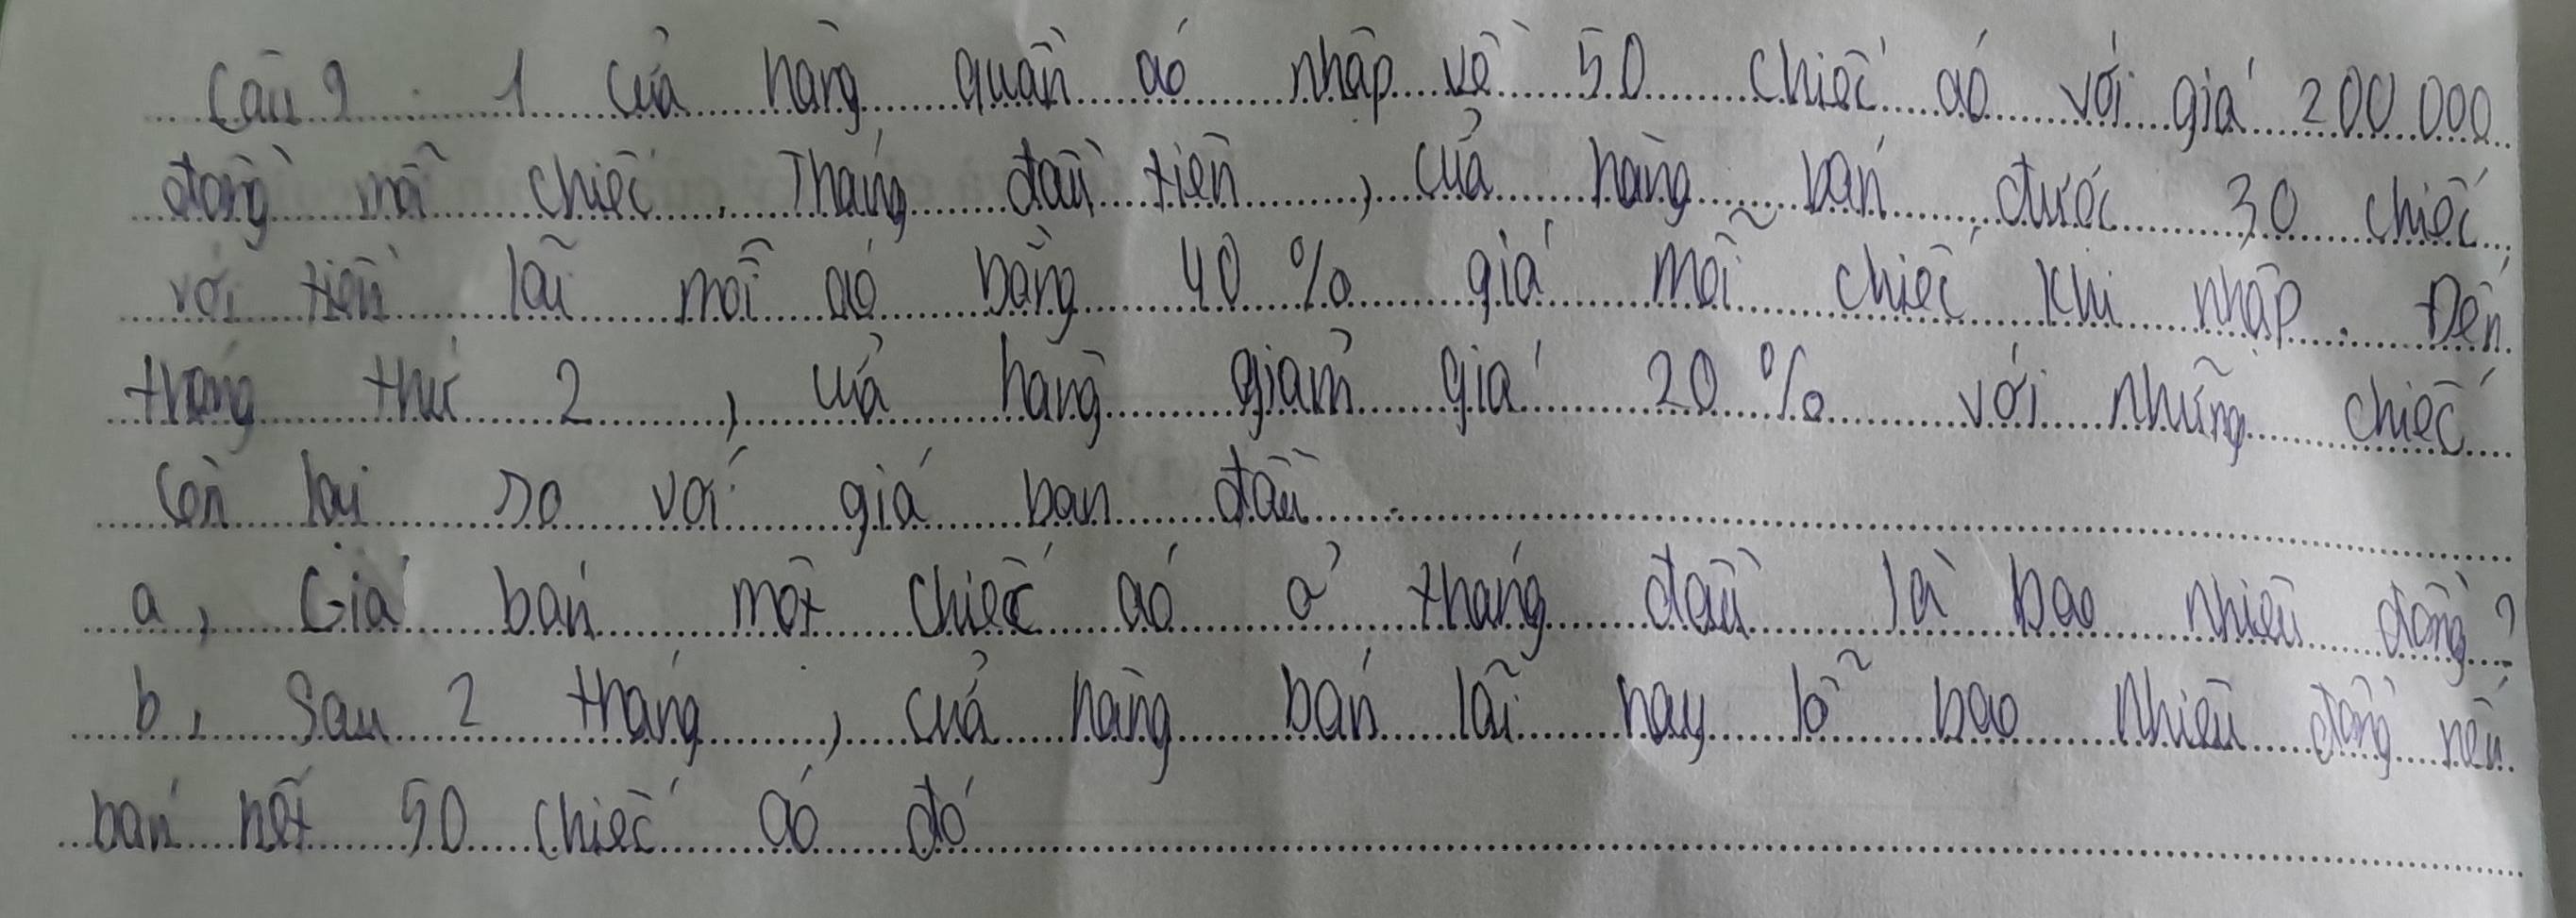 Câu 9 : 1 cửa hàng quần áo nhập về 50 chiếc áo với giá 200 000
đồng mỗi chiếc. Tháng đầu tiên, cửa hàng bán được 30 chiếc
với tiền lãi mỗi áo bằng 40 % giá mỗi chiếc khi nhập. Đến
tháng thứ 2, cửa hàng giảm giá 20 % với những chiếc
còn lại so với giá ban đầu.
a, Giá bán một chiếc áo ở tháng đầu là bao nhiêu đồng?
b, Sau 2 tháng, cửa hàng bán lãi hay lỗ bao nhiêu đồng nếu
bán hết 50 chiếc áo đó